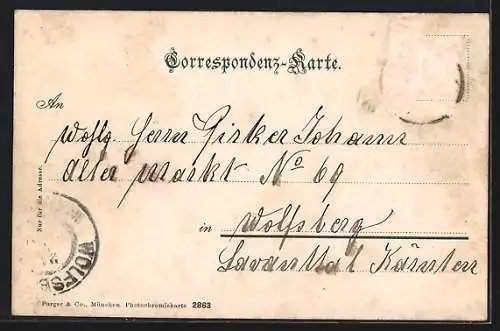 Correspondenz-Karte.
An
Wohlg. Herrn Pirker Johann
Alter Markt No 69
in Wolfsberg
Lavanttal Kärnten
Nur für die Adresse.
WOLFSB
Purger & Co., München. Photochromiekarte 2863